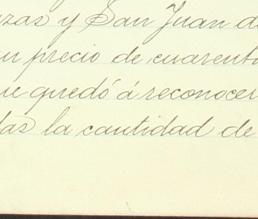 zas y San Juan de
un precio de cuarenta
ue quedó á reconocer
das la cantidad de